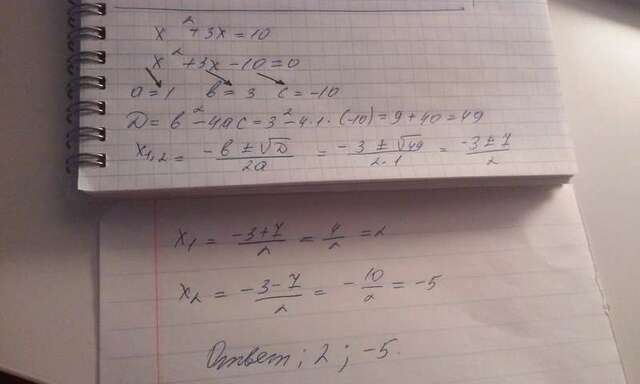 x² + 3x = 10
x² + 3x - 10 = 0
a = 1 b = 3 c = -10
D = b² - 4ac = 3² - 4·1·(-10) = 9 + 40 = 49
x1,2 = (-b ± √D)/2a = (-3 ± √49)/2·1 = (-3 ± 7)/2
x1 = (-3+7)/2 = 4/2 = 2
x2 = (-3-7)/2 = -10/2 = -5
Ответ; 2; -5.